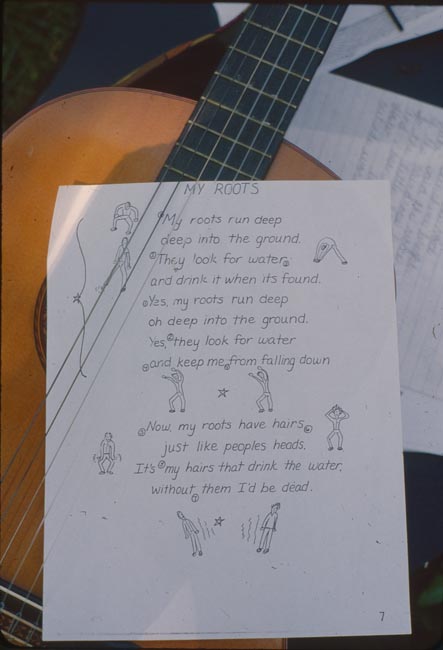 MY ROOTS
My roots run deep
deep into the ground.
They look for water
and drink it when its found.
Yes, my roots run deep
oh deep into the ground.
Yes, they look for water
and keep me from falling down
Now, my roots have hairs
just like peoples heads.
It's my hairs that drink the water,
without them I'd be dead.
7